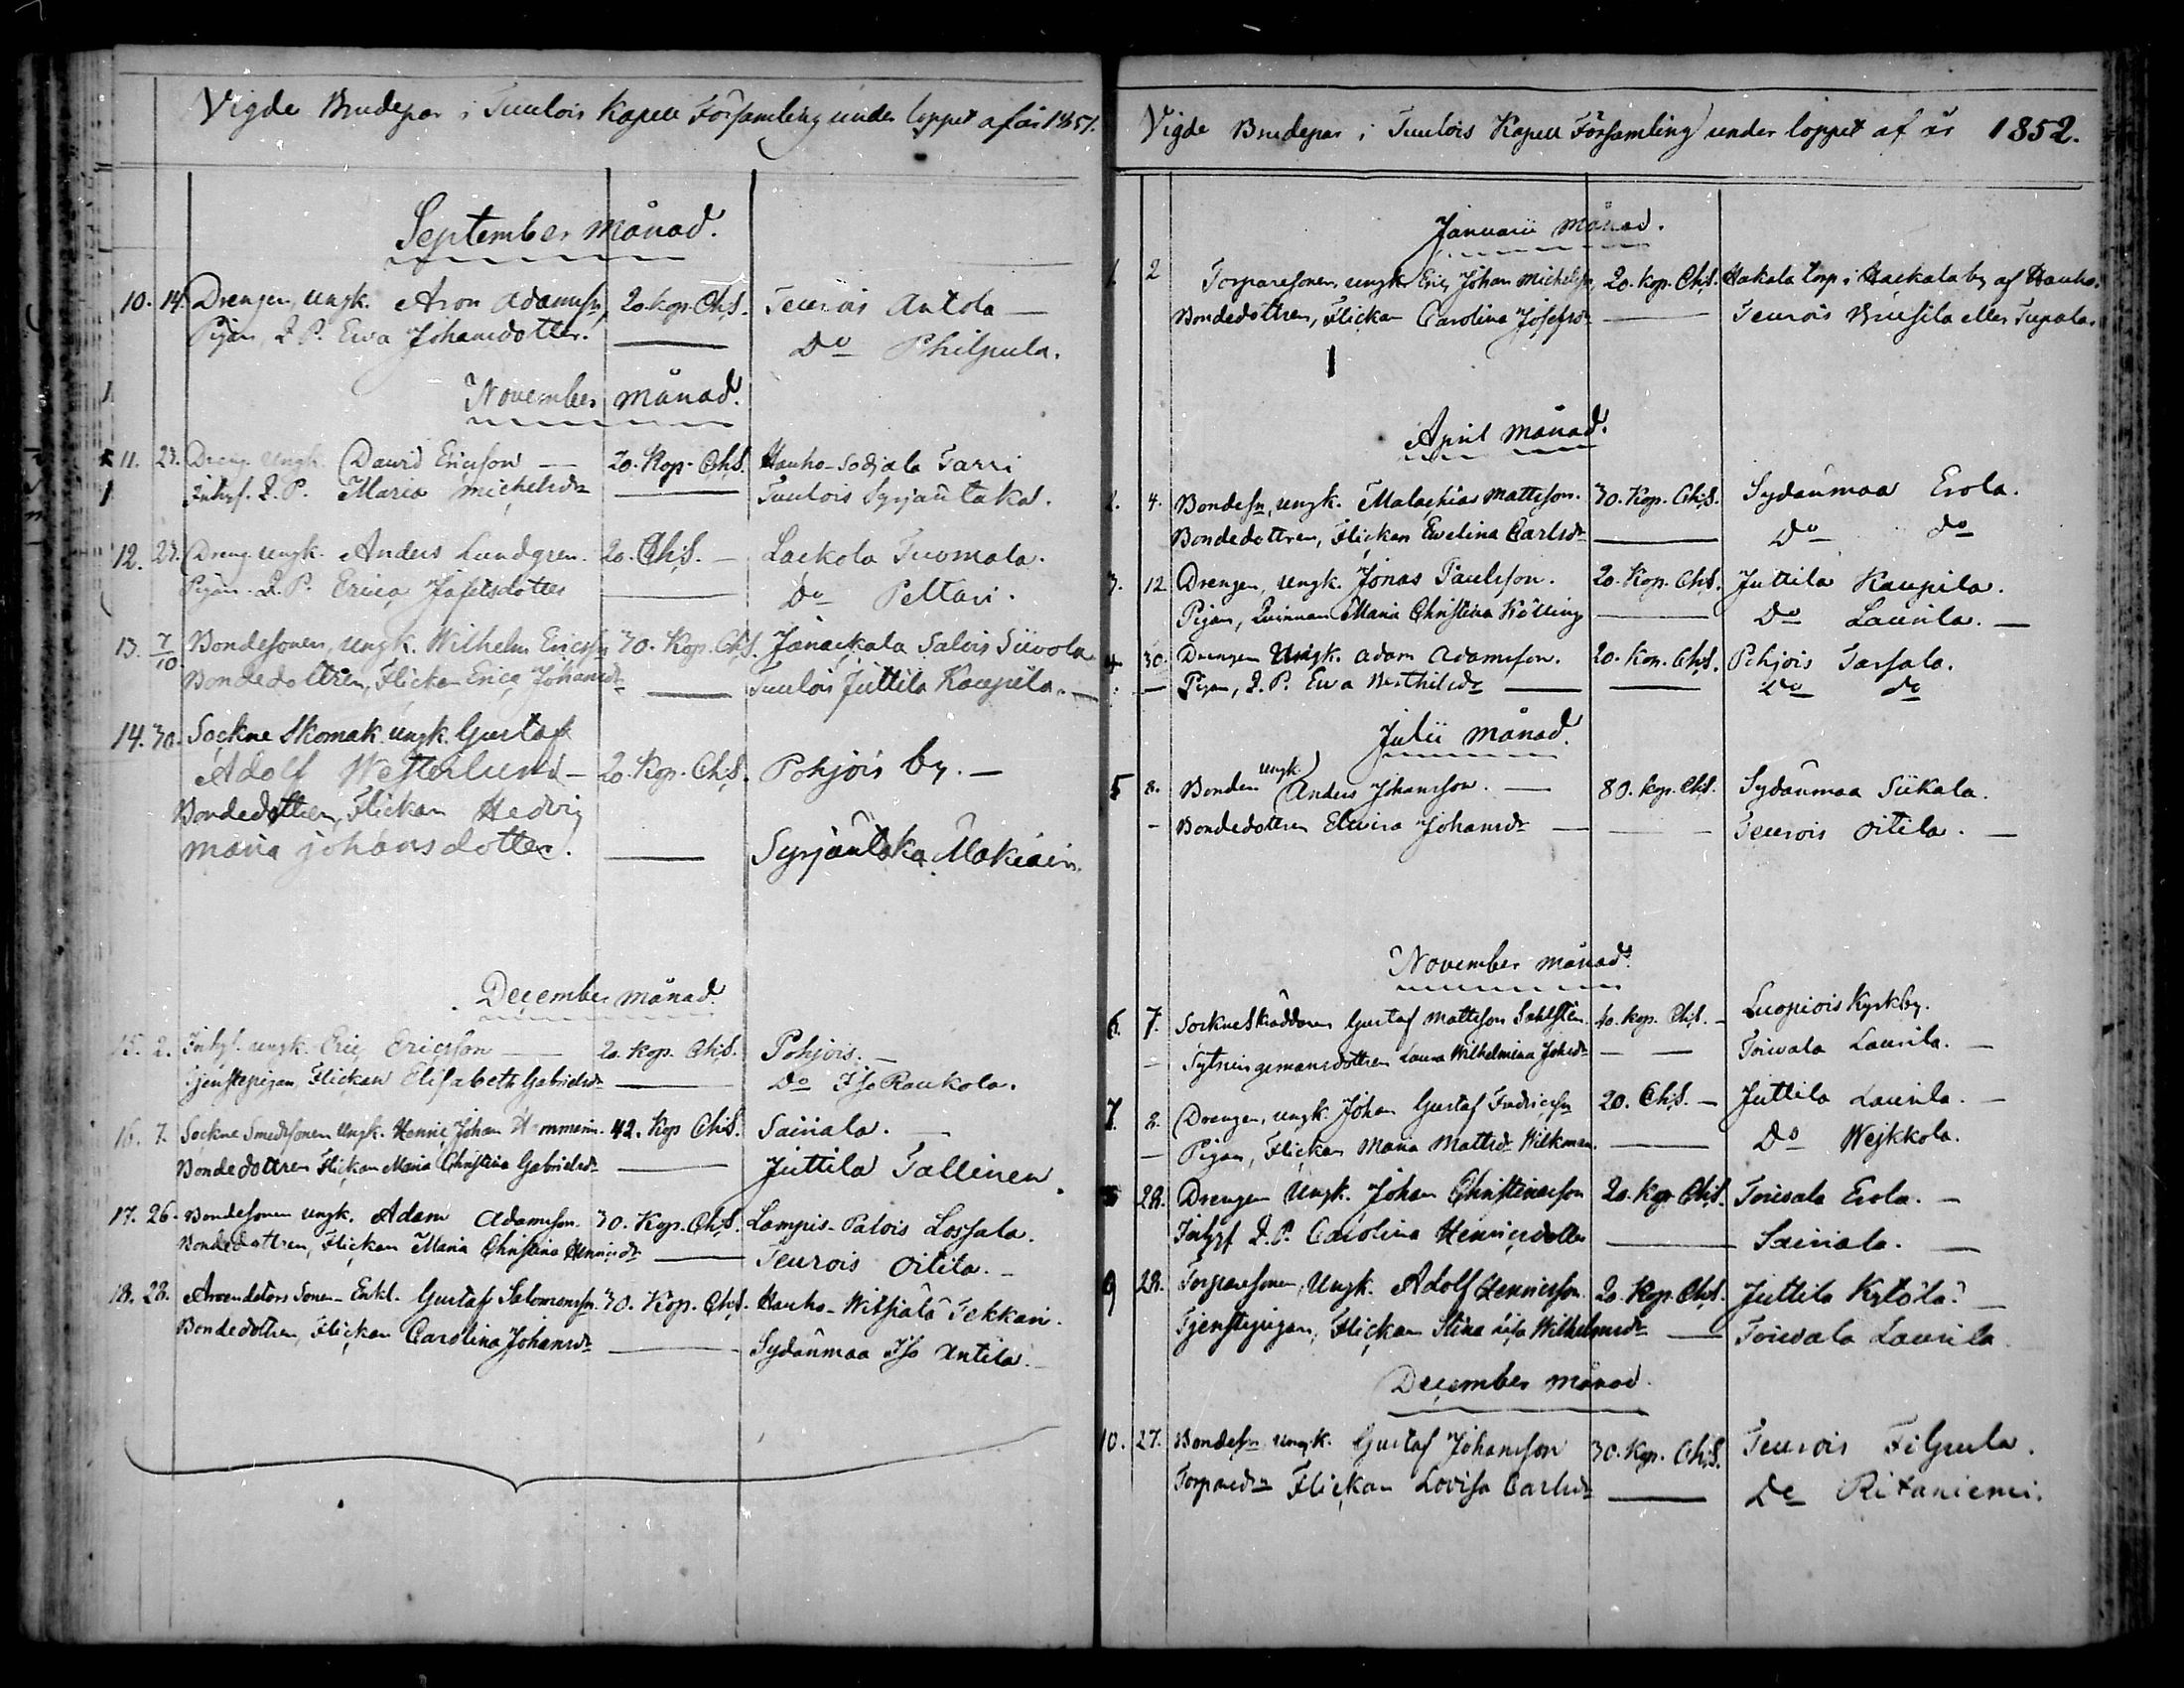 Vigde Brudepar i Tuulois Kapell Församling under loppet af år 1851.
September månad.
10. 14. Drengen, ungk. Aron Adamsson, 20. kop. Ch.S. Teurois Antola —
Pigan, Q. P. Ewa Johansdotter. — Do Philpula.
November månad.
11. 23. Dreng. Ungk. David Ericsson — 20. Kop. Ch.S. Hauho-Sotjala Tarri
Inhys. Q. P. Maria Michelsdr — Tuulois Syrjäntaka.
12. 23. Dreng ungk. Anders Lundgren. 20. Ch.S. — Laekola Tuomala.
Pigan. Q. P. Erica Jafetsdotter — Do Peltari.
13. 7/10. Bondesonen, ungk. Wilhelm Ericsson 30. Kop. Ch.S. Janackala Salois Siivola
Bondedottren, Flickan Erica Johansdr — Tuulois Juttila Kaupila. —
14. 30. Sockne Skomak. ungk. Gustaf
Adolf Westerlund — 20. Kop. Ch.S. Pohjois by. —
Bondedottren, Flickan Hedvig
Maria Johansdotter. — Syrjäntaka Makiain.
December månad.
15. 2. Inhys. ungk. Eric Ericsson — 20. Kop. Ch.S. Pohjois. —
Tjenstepigan, Flickan Elisabeth Gabrielsdr — Do Iso Raukola.
16. 7. Sockne Smedssonen Ungk. Henric Johan 42. Kop Ch.S. Sairiala. —
Bondedottren Flickan Maria Christina Gabrielsdr — Juttila Tallinen.
17. 26. Bondesonen ungk. Adam Adamsson. 30. Kop. Ch.S. Lampis-Palois Lossala.
Bondedottren, Flickan Maria Christina Henricsdr — Teurois Oitila. —
18. 28. Arrendators Sonen - Enkl. Gustaf Salomonsson. 30. Kop. Ch.S. Hauho-Witsiälä Tekkari.
Bondedottren, Flickan Carolina Johansdr — Sydänmaa Iso Antila. —
Vigde Brudepar i Tuulois Kapell Församling under loppet af år 1852.
Januarii Månad.
1. 2 Torparesonen, ungk. Eric Johan Michelsson, 20. kop. Ch.S. Hakala torp i Hackala by af Hauho.
Bondedottren, Flickan Carolina Josefsdr — Teurois Bruusila eller Tupala.
April Månad.
2. 4. Bondesn, ungk. Malachias Mattsson. 30. Kop. Ch.S. Sydänmaa Erola.
Bondedottren, Flickan Ewelina Carlsdr — Do do
3. 12. Drengen, ungk. Jonas Paulsson. 20. Kop. Ch.S. Juttila Kaupila.
Pigan, Quinnan Maria Christina Kölling — Do Laurila. —
4 30. Drengen Ungk. Adam Adamsson. 20. Kop. Ch.S. Pohjois Tarsala.
— Pigan, Q. P. Ewa Berthilsdr — Do do
Julii månad.
ungk.
5 8. Bonden Anders Johansson. — 80. Kop. Ch.S. Sydänmaa Siikala.
- Bondedottren Elwira Johansdr — Teurois Oitila. —
November månad.
6. 7. Sockneskräddaren Gustaf Mattsson Sahlsten. 40. kop. Ch.S. — Luopiois Kyrkby.
— Sytningsmansdottren Laura Wilhelmina Johsdr — Toivala Laurila. —
7. 2. Drengen, ungk. Johan Gustaf Fredricsson 20. Ch.S. — Juttila Laurila. —
— Pigan, Flickan Maria Mattsdr Wilkman. — Do Wejkkola.
8 28. Drengen Ungk. Johan Christiansson 20. Kop Ch.S. Toivala Erola. —
Inhys Q. P. Carolina Henricsdotter — Sairiala. —
9 28. Torparesonen, Ungk. Adolf Henricsson 20. Kop. Ch.S. Juttila Kylölä? —
Tjenstepigan, Flickan Stina Lisa Wilhelmsdr — Toivala Laurila
December månad.
10. 27. Bondesn ungk. Gustaf Johansson 30. Kop. Ch.S. Teurois Filpula.
Torparedr Flickan Lovisa Carlsdr — Do Ritaniemi.